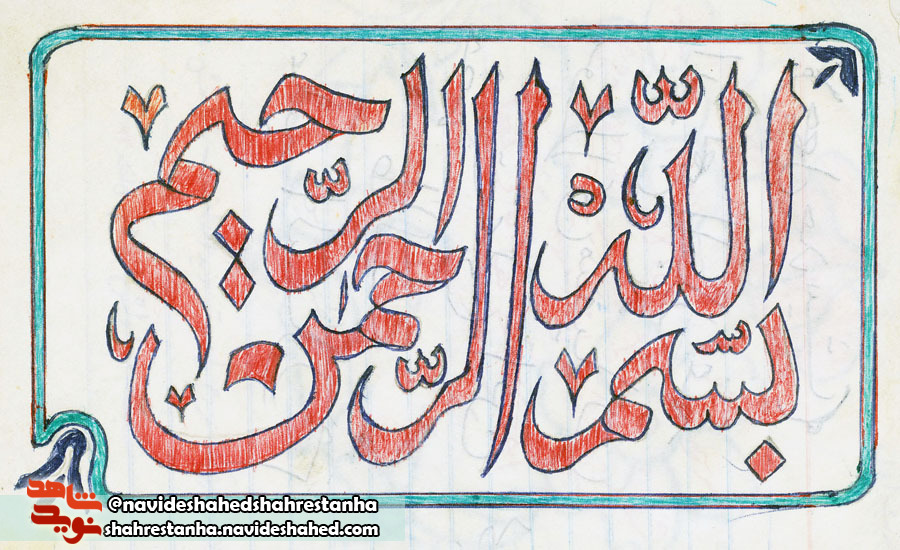 بسم الله الرحمن الرحيم
شاهد
نوید
@navideshahedshahrestanha
shahrestanha.navideshahed.com